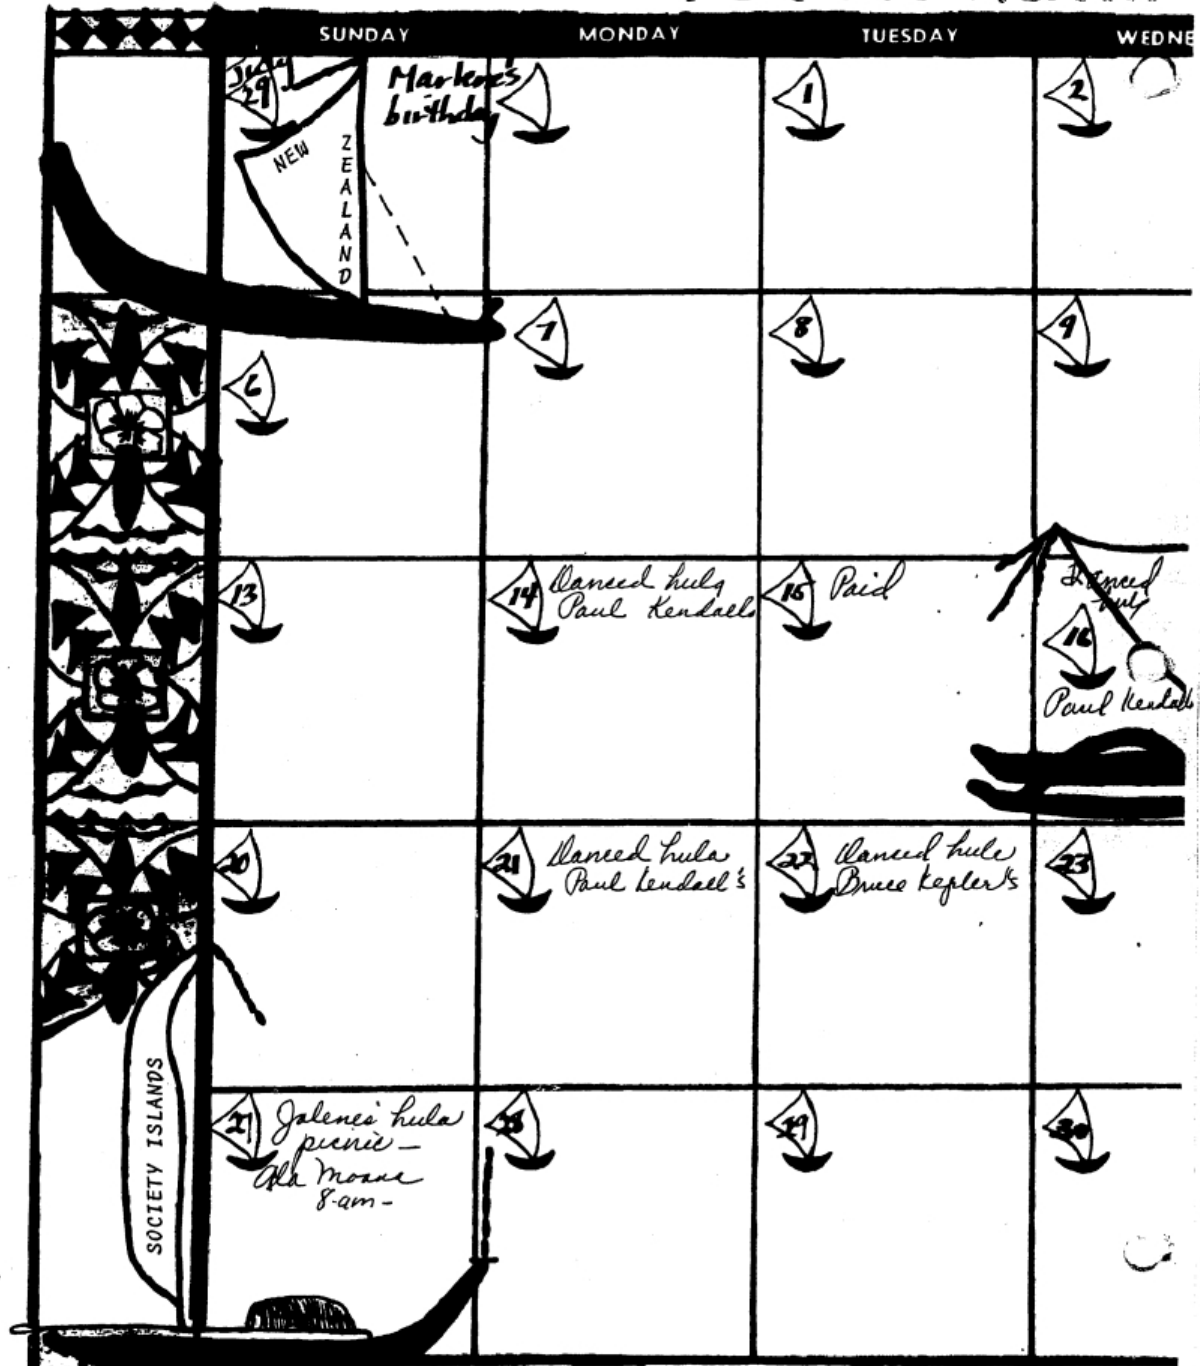 SUNDAY MONDAY TUESDAY WEDNE
July
29
Marlene's
birthday
1
2
NEW
ZEALAND
6
7
8
9
13
14
Danced hula
Paul Kendalls
15
Paid
Danced
hula
16
Paul Kendalls
20
21
Danced hula
Paul Kendall's
22
Danced hula
Bruce Kepler's
23
27
Jalene's hula
picnic –
Ala Moana
8-am –
28
29
30
SOCIETY ISLANDS